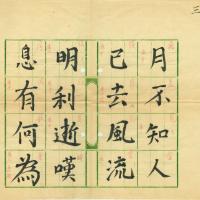 三
月不知人
已去風流
明利逝嘆
息有何為